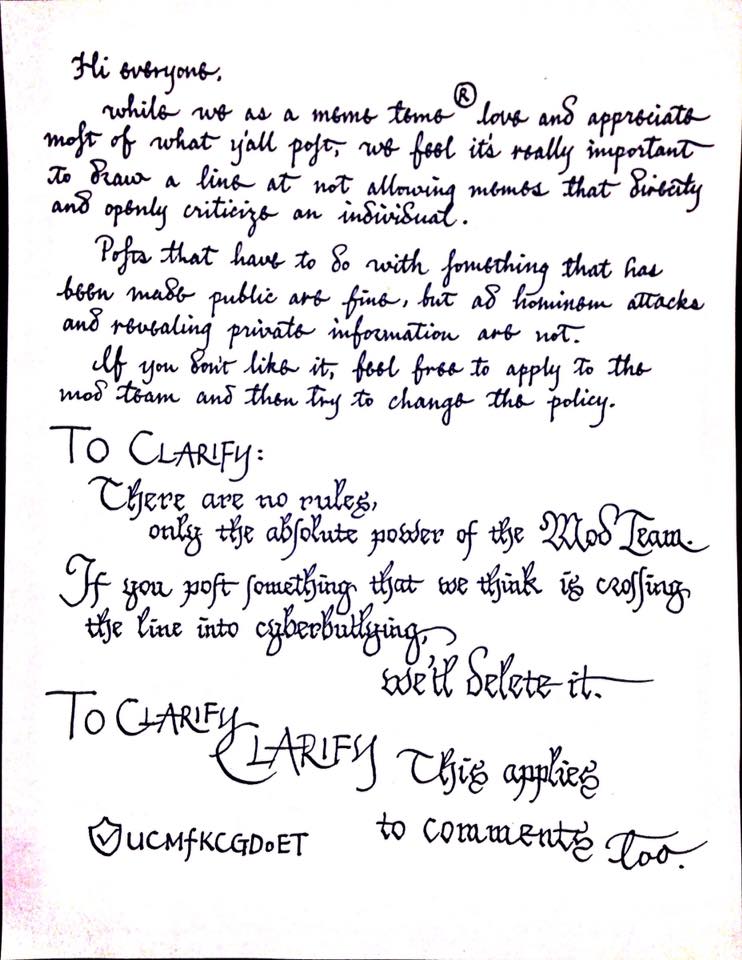 Hi everyone,
while we as a meme teme® love and appreciate
moſt of what y'all poſt, we feel it's really important
to draw a line at not allowing memes that directly
and openly criticize an individual.
Poſts that have to do with ſomething that has
been made public are fine, but ad hominem attacks
and revealing private information are not.
If you don't like it, feel free to apply to the
mod team and then try to change the policy.
TO CLARIFY:
There are no rules,
only the abſolute power of the Mod Team.
If you poſt ſomething that we think is croſſing
the line into cyberbullying,
we'll delete it.
TO CLARIFY
CLARIFY This applies
to comments too.
UCMfKCGDoET